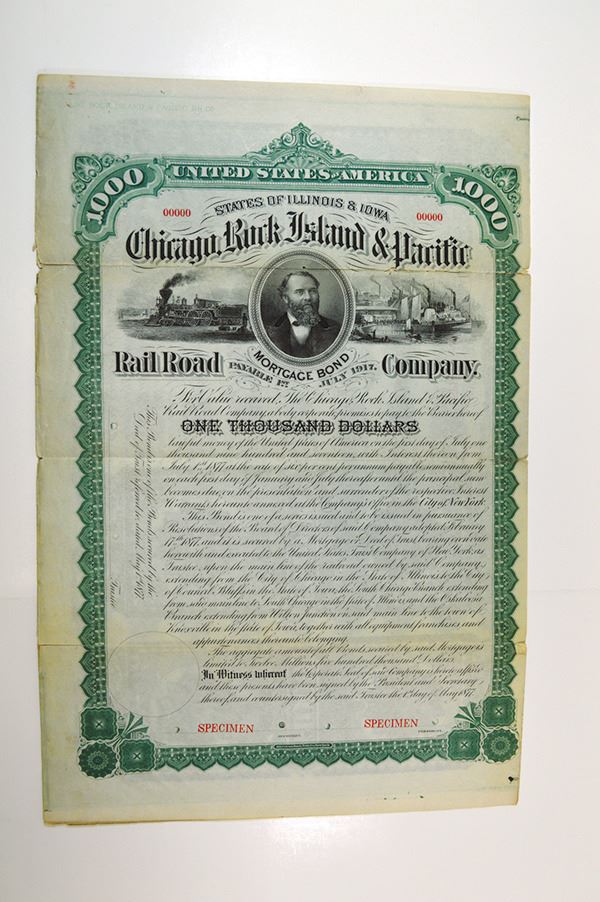 UNITED STATES OF AMERICA
1000 1000
00000 00000
STATES OF ILLINOIS & IOWA
Chicago, Rock Island & Pacific
MORTGAGE BOND
Rail Road PAYABLE 1ST JULY 1917. Company.
For Value received, The Chicago Rock Island & Pacific
Rail Road Company a body corporate promises to pay to the Bearer hereof
ONE THOUSAND DOLLARS
Lawful money of the United States of America on the first day of July one
thousand nine hundred and seventeen, with Interest thereon from
July 1st 1877 at the rate of six per cent per annum payable semiannually
on each first day of January and July thereafter until the principal sum
becomes due, on the presentation and surrender of the respective Interest
Warrants hereunto annexed at the Company's Office in the City of New York.
This Bond is one of a series issued and to be issued in pursuance of
Resolutions of the Board of Directors of said Company adopted February
17th 1877, and is secured by a Mortgage or Deed of Trust bearing even date
herewith and executed to the United States Trust Company of New York, as
Trustee, upon the main line of the railroad owned by said Company,
extending from the City of Chicago in the State of Illinois to the City
of Council Bluffs in the State of Iowa, the South Chicago Branch extending
from said main line to South Chicago in the State of Illinois and the Oskaloosa
Branch extending from Wilton Junction on said main line to the town of
Knoxville in the State of Iowa, together with all equipment franchises and
appurtenances thereunto belonging.
The aggregate amount of all Bonds secured by said Mortgage is
limited to twelve Millions five hundred thousand Dollars.
In Witness whereof the Corporate Seal of said Company is hereto affixed
and these presents have been signed by the President and Secretary
thereof, and countersigned by the said Trustee the 1st day of May 1877.
This Bond is one of the Bonds secured by the
Deed of Trust of even date May 1st 1877
Trustee
SPECIMEN SPECIMEN